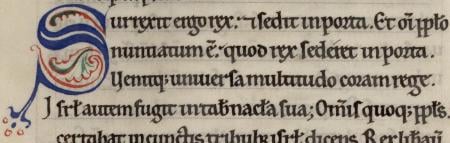 Surrexit ergo rex: ⁊ sedit in porta. Et oı̅ pp̅lo
nuntiatum e̅ quod rex sederet in porta.
Venitq; uniuersa multitudo coram rege.
Isrł autem fugit in tab̅nacła sua; Om̅is quoq; pp̅ls.
certabat in cunctis tribub; isrł dicens. Rex lib̅auı̅